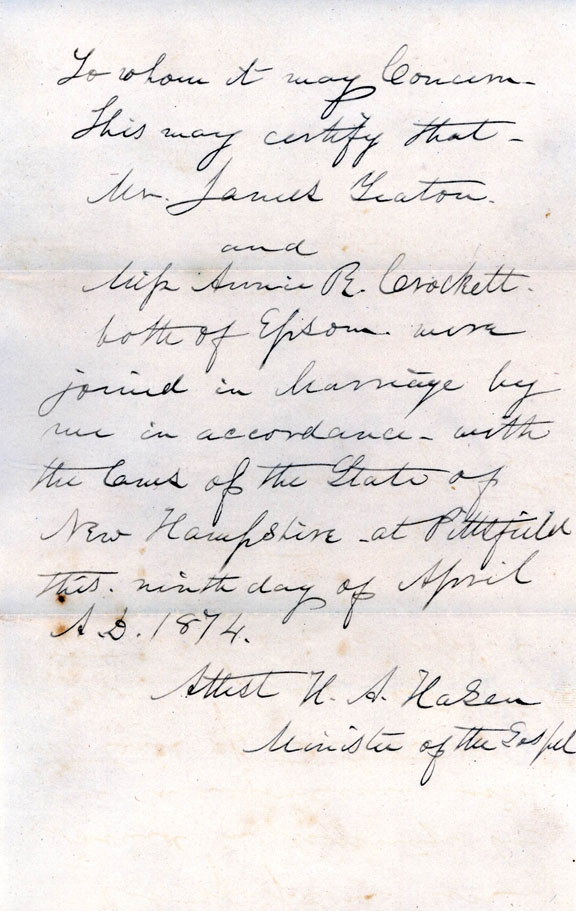 To whom it may Concern-
This may certify that-
Mr. James Yeaton.
and
Miss Annie R. Crockett.
both of Epsom. were
joined in Marriage by
me in accordance- with
the Laws of the State of
New Hampshire -at Pittsfield
this. ninth day of April
A.D. 1874.
Attest H. A. Hazen
Minister of the Gospel